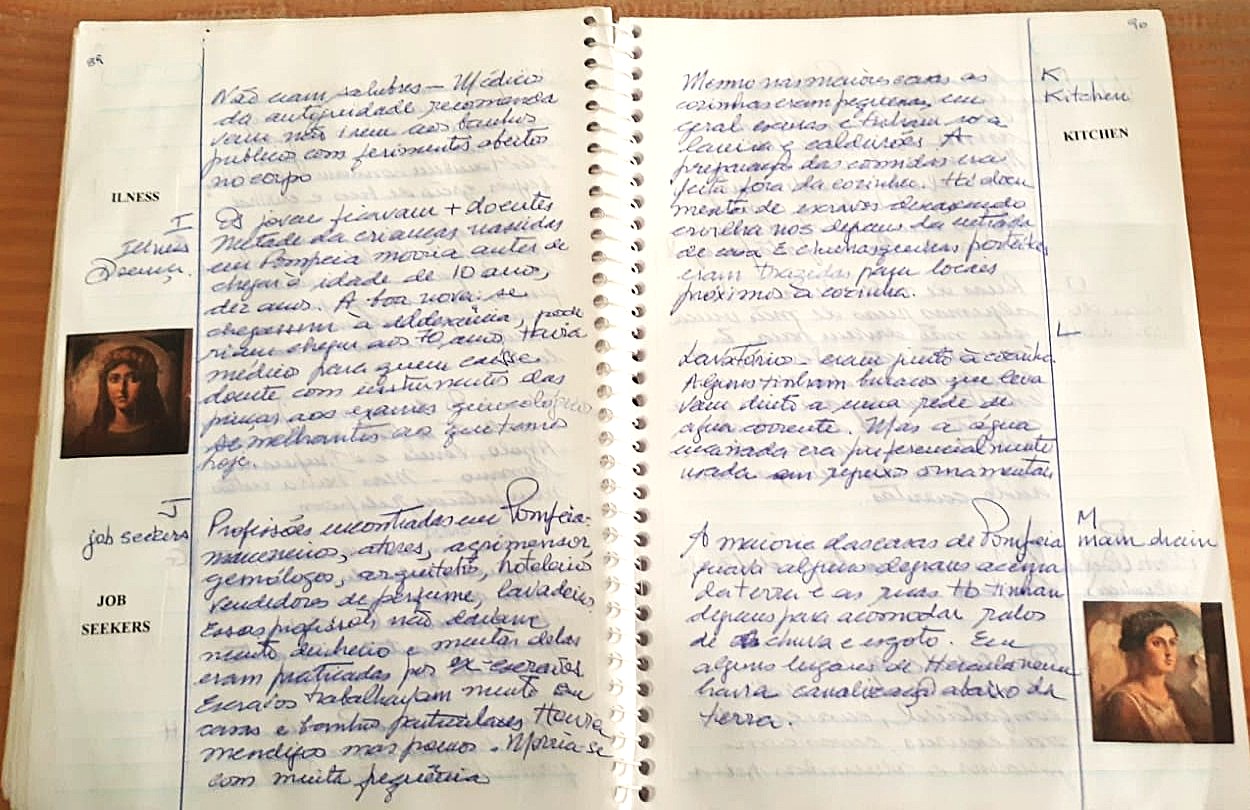 89
Não eram salubres – Médico
da antiguidade recomenda
vam não irem aos banhos
público com ferimentos abertos
no corpo
ILNESS
I
Ilness
Doença.
Os jovau ficavam + doentes
Metade da crianças nascidas
em Pompeia morria antes de
chegar à idade de 10 anos,
dez anos. A boa nova: se
chegassem à adolescência, pode
riam chegar aos 70 anos. Havia
médico para quem caísse
doente com instrumentos das
pinças aos exames ginecológicos
semelhantes ao que temos
hoje.
J
job seekers
JOB
SEEKERS
Profissões encontradas em Pompeia:
marceneiros, atores, agrimensor,
gemólogos, arquiteto, hoteleiro
vendedores de perfume, lavadeiras.
Essas profissões não davam
muito dinheiro e muitas delas
eram praticadas por ex-escravos.
Escravos trabalhavam muito em
casas e banhos particulares Houve
mendigos mas poucos. Morria-se
com muita frequência
90
K
Kitchen
KITCHEN
Mesmo nas maiores casas as
cozinhas eram pequenas, em
geral escuras e tinham só a
lareira e caldeirões. A
preparação das comidas era
feita fora da cozinha. Há docu
mentos de escravos descascando
ervilha nos degraus da entrada
de casa E churrasqueiras portáteis
eram trazidas para locais
próximos à cozinha.
L
Lavatório – eram junto à cozinha.
Alguns tinham buracos que leva
vam direto a uma rede de
água corrente. Mas a água
encanada era preferencialmente
usada em repuxo ornamentais
M
main drain
A maioria das casas de Pompeia
ficava alguns degraus acima
da terra e as ruas tb tinham
degraus para acomodar ralos
de chuva e esgoto. Em
alguns lugares de Herculaneum
havia canalização abaixo da
terra.